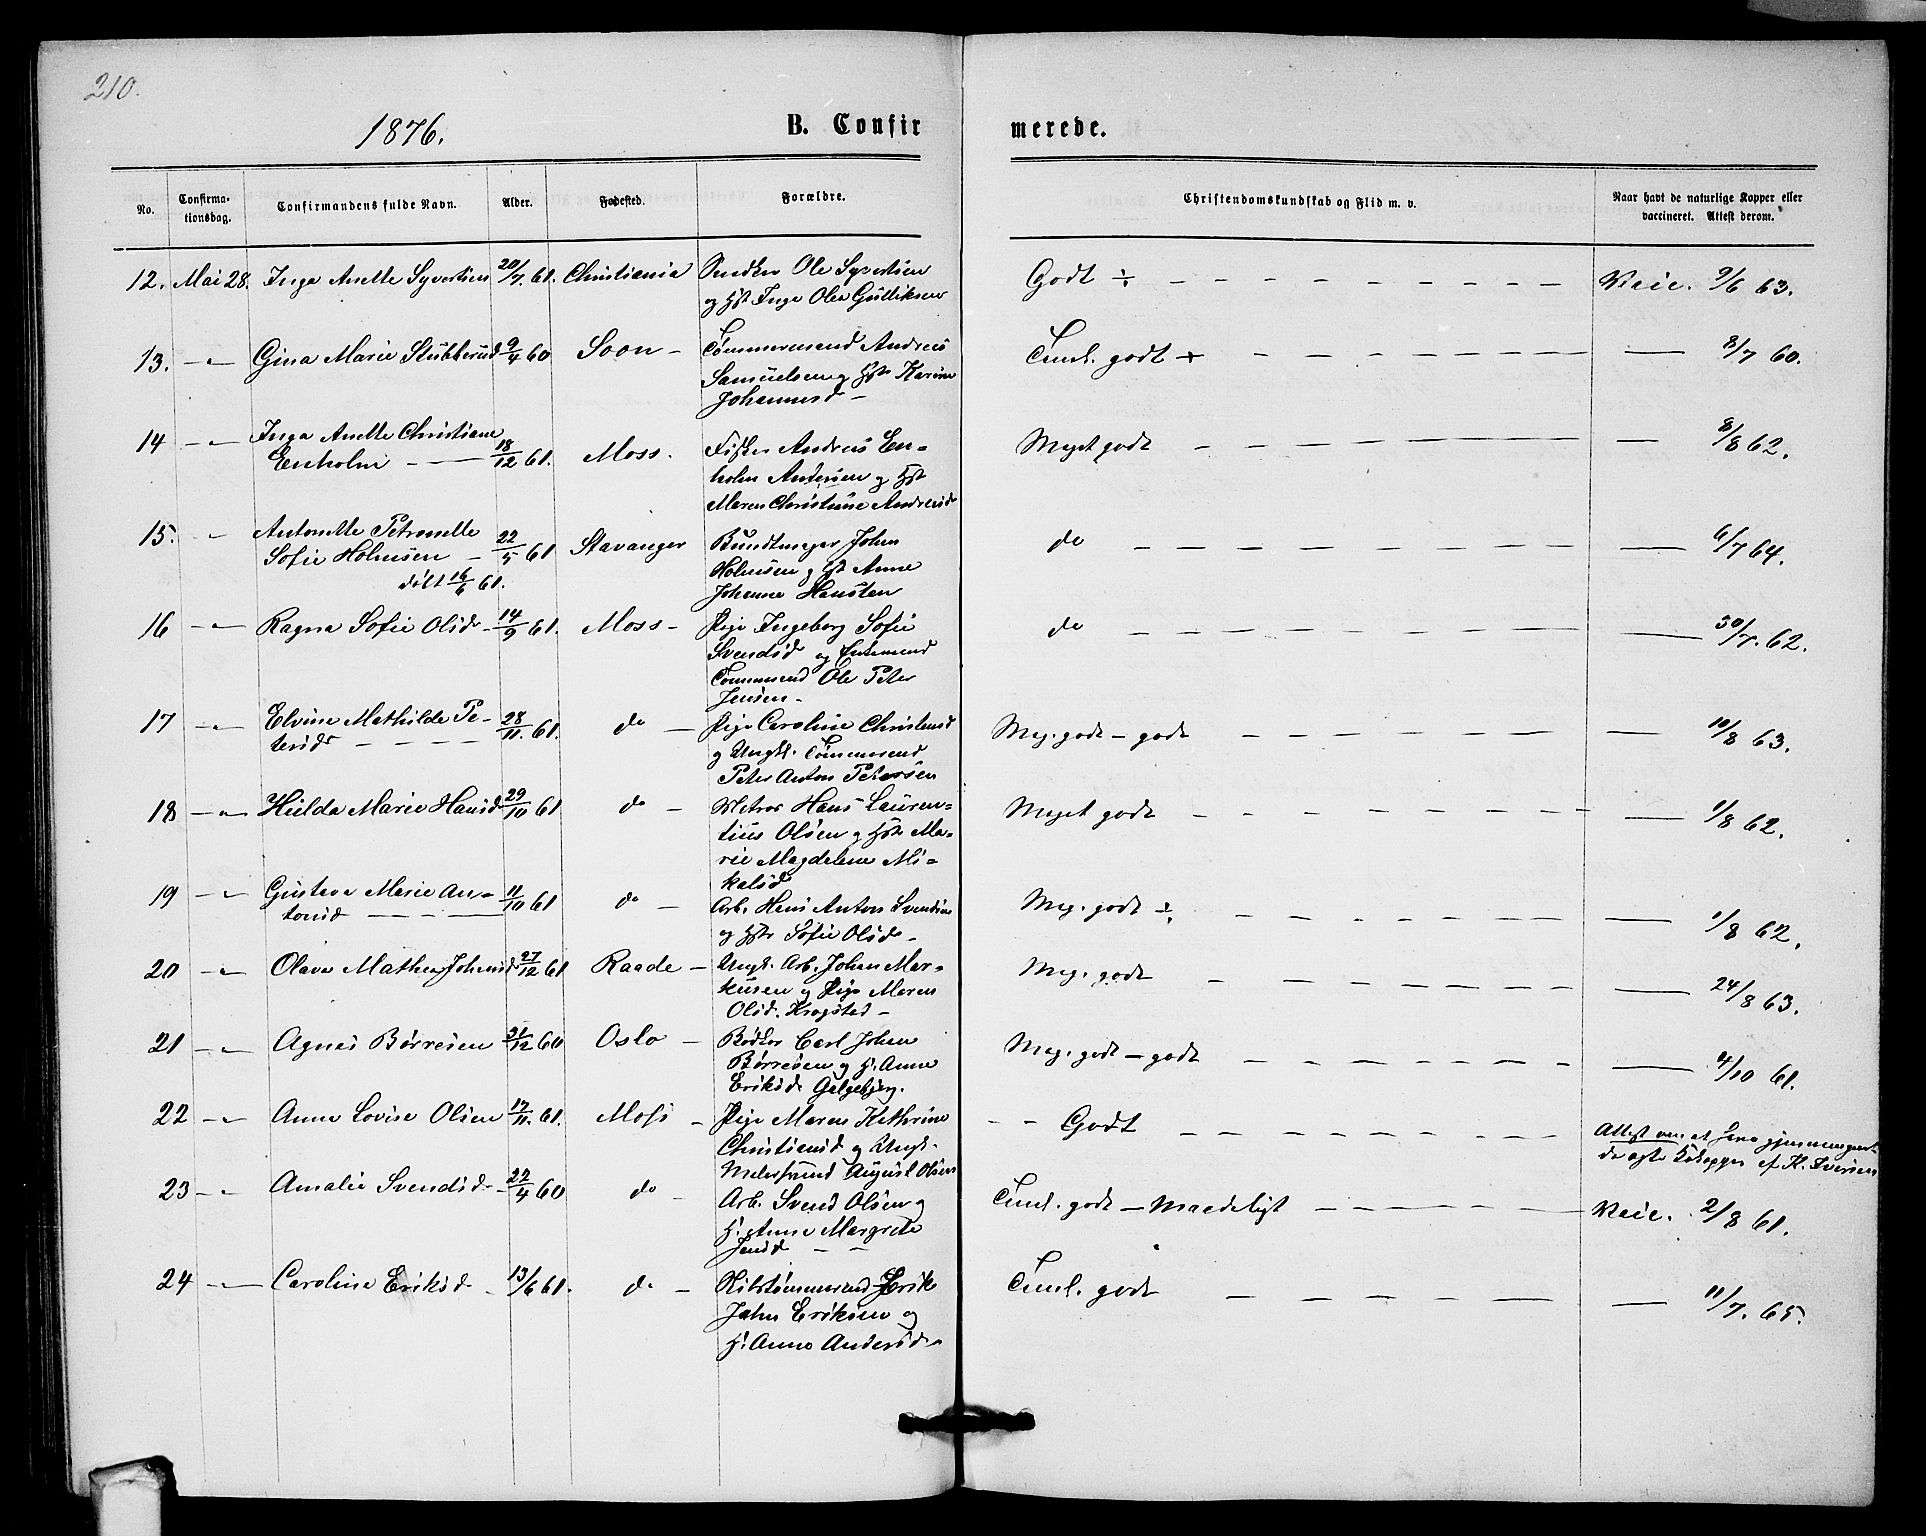 210.
1876.
B. Confirmerede.
No.
Confirmationsdag.
Confirmandens fulde Navn.
Alder.
Fødested.
Forældre.
Christendomskundskab og Flid m. v.
Naar havt de naturlige Kopper eller
vaccineret. Attest derom.
12. Mai 28. Inga Anette Syvertsen 20/7 61. Christiania Ole Syvertsen Godt ÷ Veie. 9/6 63.
og Hst Inga Olea Gulliksen
13. — " — Gina Marie Stubberud 9/4 60 Soon — Tømmermand Andreas Teml. godt + — 8/7 60.
Samuelsen og Hst Karine
Johannesd —
14 — " — Inga Anette Christiane
Enholm — 18/12 61. Moss. Fisker Andreas En- Meget godt — 8/8 62.
holm Andersen og Hst
Maren Christine Andreasd
15. " Antonette Petronelle
Sofie Holmsen — 22/5 61 Stavanger Bundtmager Johan do — 6/7 64.
døbt 16/6 61. Holmsen og Hst Anne
Johanne Hansten
16 — " — Ragna Sofie Olsd — 14/9 61. Moss — Pige Ingeborg Sofie do — 30/7. 62.
Svendsd og Enkemand
Tømmermd Ole Peter
Jensen —
17 — " — Elvine Mathilde Pe-
tersd — 28/11. 61. do — Pige Caroline Christensd Meg. godt — godt — 10/8 63.
og Ungk. Tømmermd
Peter Anton Petersen
18 — " — Hilda Marie Hansd 29/10 61 do — Matros Hans Lauren- Meget godt — 1/8 62.
tius Olsen og Hst Ma-
rie Magdalene Mi-
kalsd
19 — " — Gustava Marie An-
tonsd — 11/10 61 do — Arb. Hans Anton Svendsen Meg. godt ÷ — 1/8 62.
og Hst Sofie Olsd —
20 — " — Olava Mathea Johansd 27/12 61 Raade — Ungk. Arb. Johan Mar- Meg. godt — 24/8 63.
kusen og Pige Maren
Olsd. Krogsted —
21 — " — Agnes Børresen 31/12 60 Oslo — Bødker Carl Johan Meg. godt — godt — 4/10 61.
Børresen og H. Anne
Eriksd Galgebjerg.
22 — " — Anna Lovise Olsen 17/11. 61. Moss — Pige Maren Kathrine — Godt — Attest om at have gjennemgaaet
Christiansd og Ungk. de Kokopper af K. Iversen
August Olsen
23 — " — Amalie Svendsd — 22/4 60 do — Arb. Svend Olsen og Teml. godt — Maadeligt — Veie. 2/8 61.
H. Anne Margrete
Jensd —
24 — " — Caroline Eriksd — 13/6 61. do — Erik Teml. godt — 11/7. 65.
John Eriksen og
H. Anne Andersd —